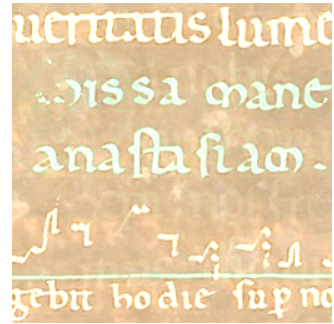 ueritatis lume
missa mane
anaſtaſiam .
gebit hodie ſuꝑ no